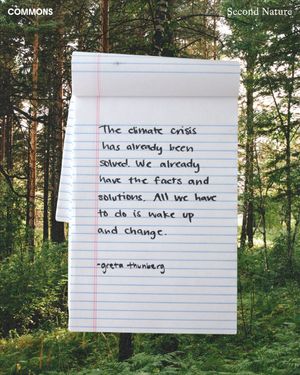 THE COMMONS
Second Nature
The climate crisis
has already been
solved. We already
have the facts and
solutions. All we have
to do is wake up
and change.
-greta thunberg